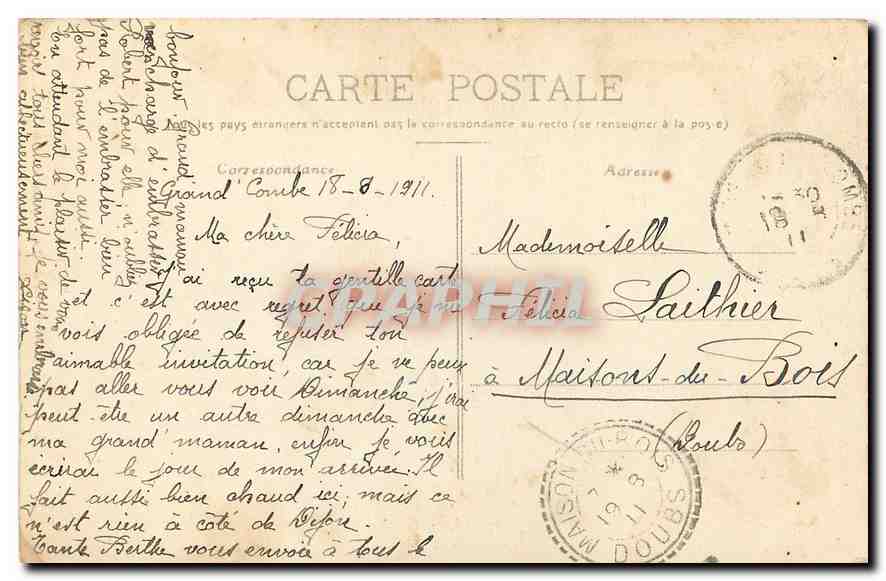 CARTE POSTALE
les pays étrangers n'acceptent pas la correspondance au recto (se renseigner à la poste)
Correspondance
Adresse
Grand' Combe 18-8-1911.
Ma chère Félicia,
J'ai reçu ta gentille carte
et c'est avec regret que je me
vois obligée de refuser ton
aimable invitation, car je ne peux
pas aller vous voir Dimanche, j'irai
peut-être un autre dimanche avec
ma grand'maman, enfin je vous
écrirai le jour de mon arrivée. Il
fait aussi bien chaud ici, mais ce
n'est rien à côté de Dijon.
Tante Berthe vous envoie à tous le
bonjour. Grand'maman
charge d'embrasser
Robert pour elle, n'oubliez
pas de l'embrasser bien
fort pour moi aussi.
En attendant le plaisir de vous
tous chers amis, je vous embrasse
bien affectueusement.
Mademoiselle
Félicia Laithier
à Maisons-du-Bois
(Doubs)
MAISONS-DU-BOIS
DOUBS
19 8
11
CPAPHIL